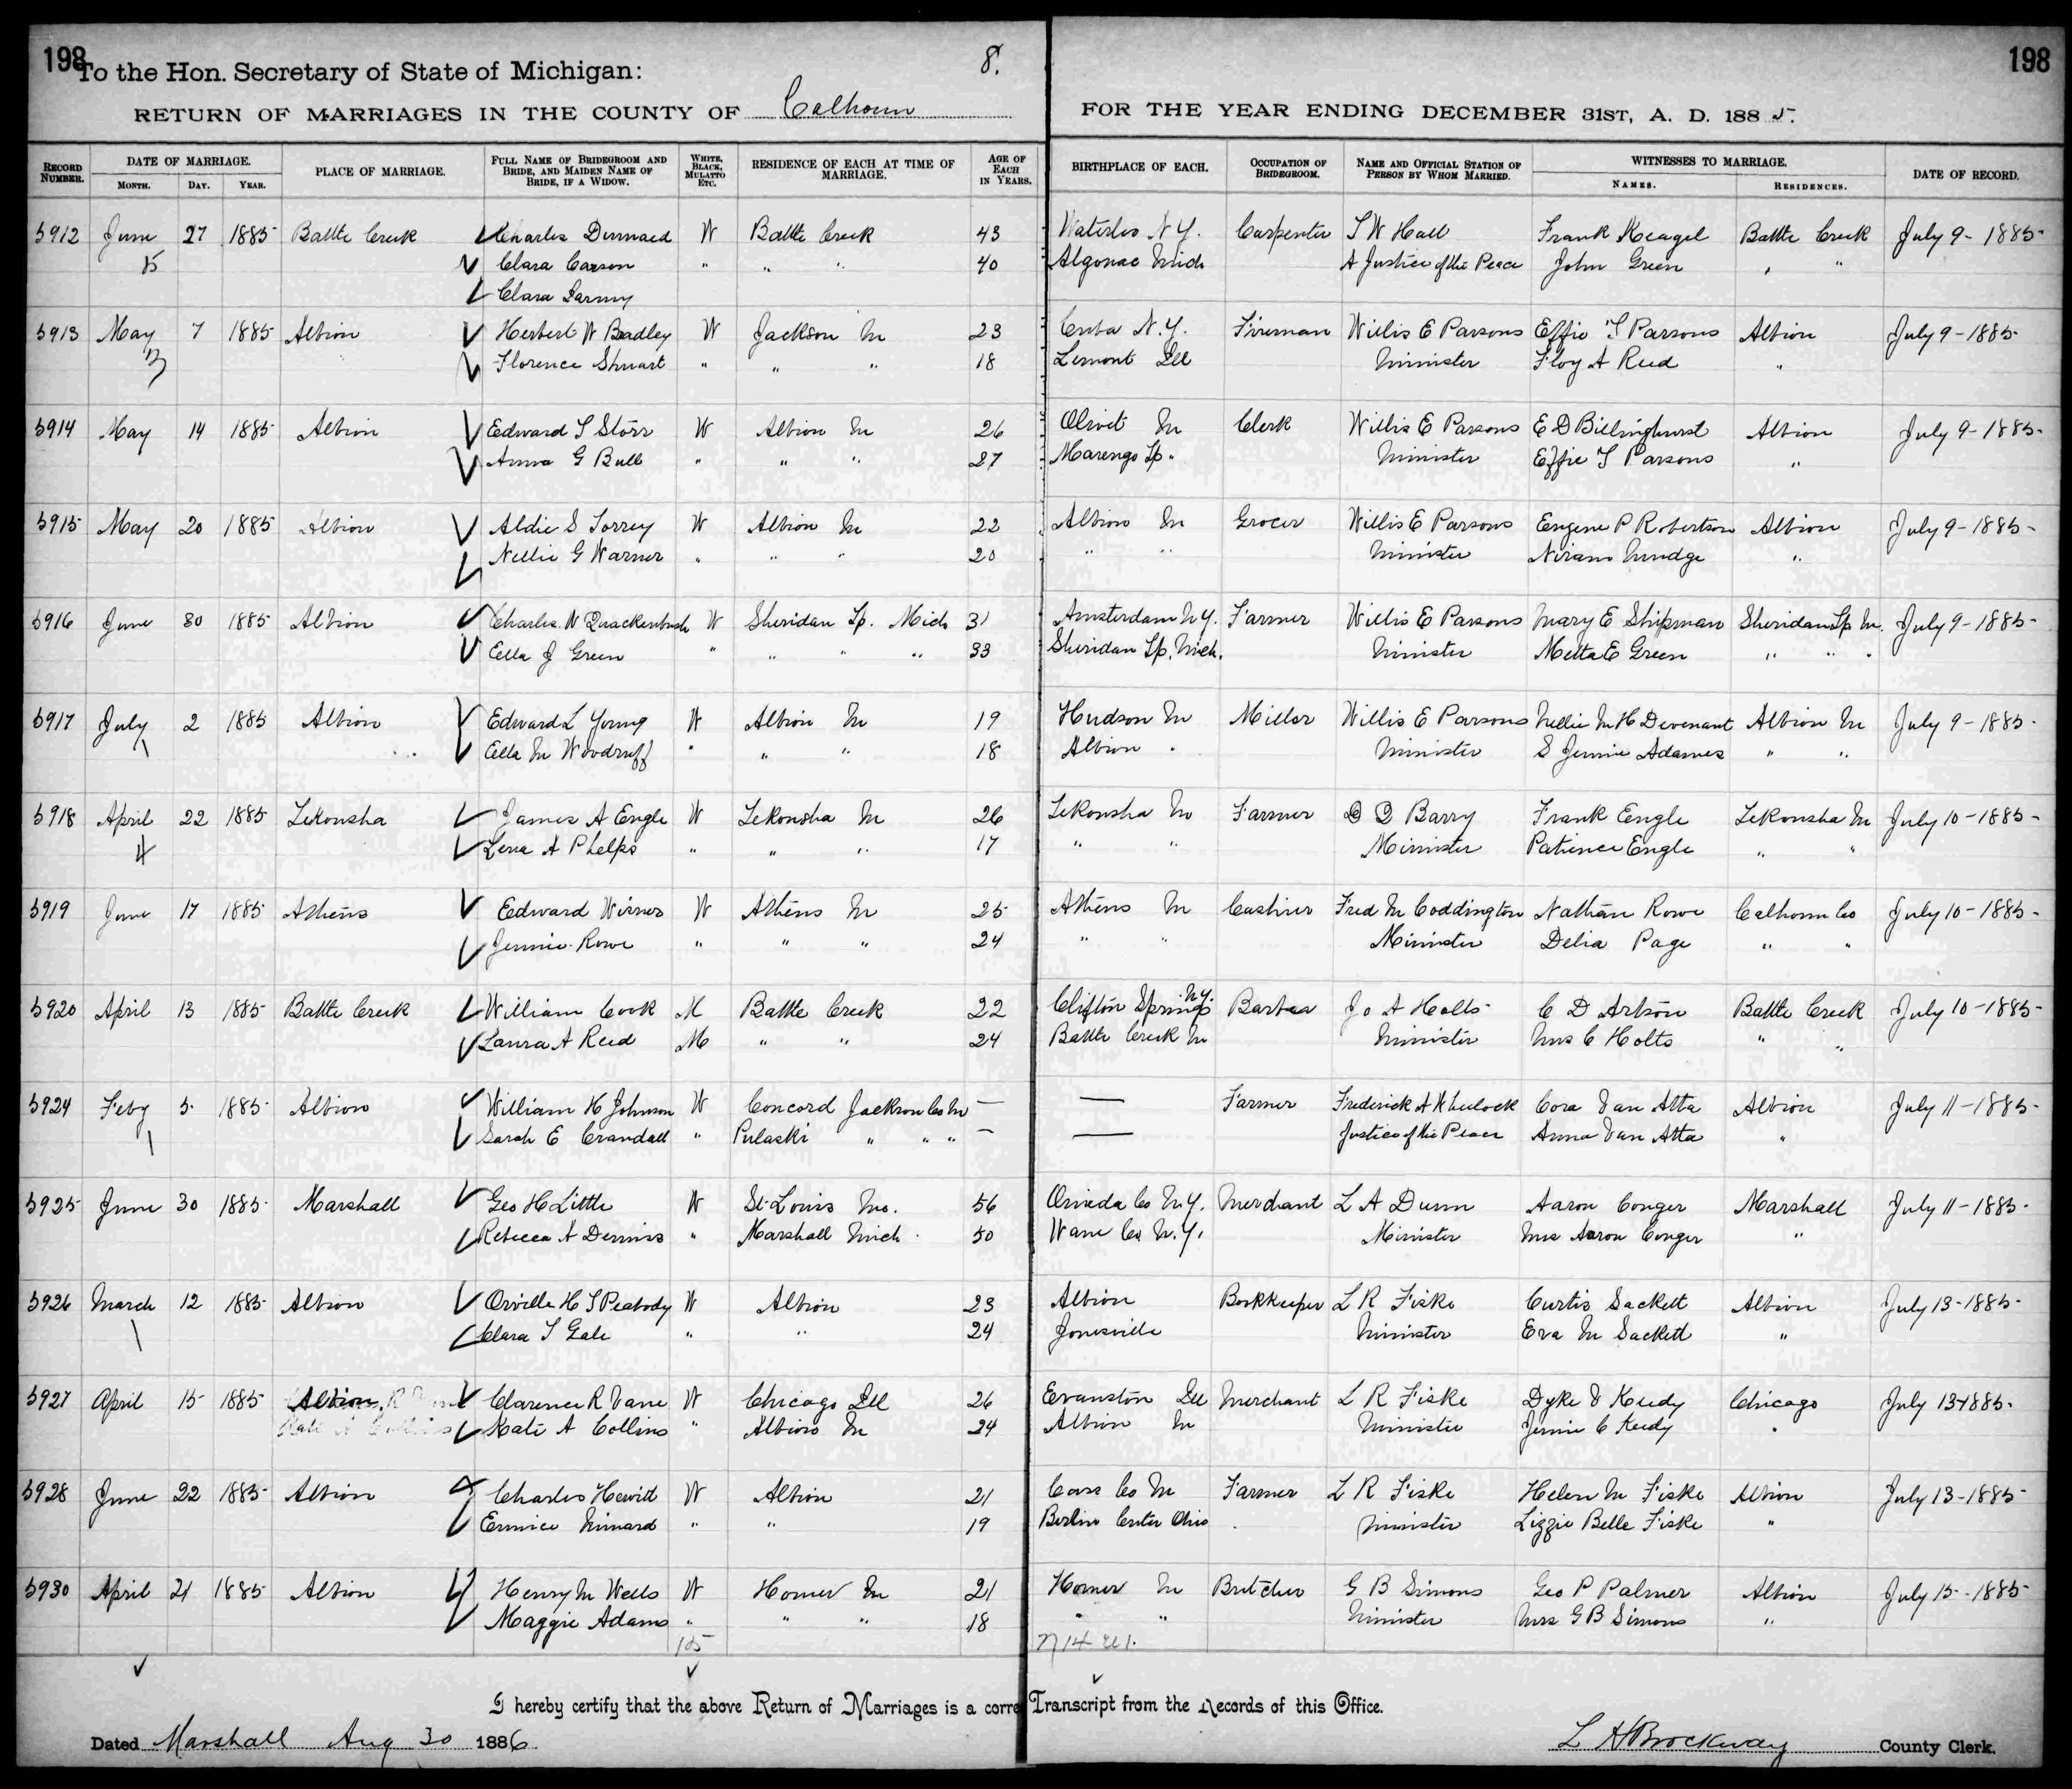 198 To the Hon. Secretary of State of Michigan: 8. 198
RETURN OF MARRIAGES IN THE COUNTY OF Calhoun FOR THE YEAR ENDING DECEMBER 31ST, A. D. 1885.
RECORD NUMBER. DATE OF MARRIAGE. MONTH. DAY. YEAR. PLACE OF MARRIAGE. FULL NAME OF BRIDEGROOM AND BRIDE, AND MAIDEN NAME OF BRIDE, IF A WIDOW. WHITE, BLACK, MULATTO ETC. RESIDENCE OF EACH AT TIME OF MARRIAGE. AGE OF EACH IN YEARS. BIRTHPLACE OF EACH. OCCUPATION OF BRIDEGROOM. NAME AND OFFICIAL STATION OF PERSON BY WHOM MARRIED. WITNESSES TO MARRIAGE. NAMES. RESIDENCES. DATE OF RECORD.
5912 June 27 1885 Battle Creek Charles W Battle Creek 43 Waterloo N.Y. Carpenter S W Hall Frank Battle Creek July 9-1885
15 Clara Carson " " " 40 Algonac Mich A Justice of the Peace John Green " "
Clara
5913 May 7 1885 Albion Herbert W Bradley W Jackson M 23 Cuba N.Y. Fireman Willis E Parsons Effie T Parsons Albion July 9-1885
13 Florence " " " 18 Lemont Ill Minister Floy A Reed "
5914 May 14 1885 Albion Edward S Storr W Albion M 26 Olivet M Clerk Willis E Parsons E D Billinghurst Albion July 9-1885
Anna G Bull " " " 27 Marengo Tp " Minister Effie T Parsons "
5915 May 20 1885 Albion Aldie S Torrey W Albion M 22 Albion M Grocer Willis E Parsons Eugene P Robertson Albion July 9-1885
Nellie G Warner " " " 20 " " Minister "
5916 June 30 1885 Albion Charles W Quackenbush W Sheridan Tp. Mich 31 Amsterdam N.Y. Farmer Willis E Parsons Mary E Shipman Sheridan Tp M. July 9-1885
Ella J Green " " " " 33 Sheridan Tp. Mich. Minister Metta E Green " " "
5917 July 2 1885 Albion Edward L Young W Albion M 19 Hudson M Miller Willis E Parsons Nellie M H Albion M July 9-1885
1 Ella M Woodruff " " " 18 Albion " Minister S Jennie Adames " "
5918 April 22 1885 Tekonsha James A Engle W Tekonsha M 26 Tekonsha M Farmer Barry Frank Engle Tekonsha M July 10-1885
4 Lena A Phelps " " " 17 " " Minister Patience Engle " "
5919 June 17 1885 Athens Edward W Athens M 25 Athens M Cashier Fred M Coddington Nathan Rowe Calhoun Co July 10-1885
Jennie Rowe " " " 24 " " Minister Delia Page " "
5920 April 13 1885 Battle Creek William Cook M Battle Creek 22 Clifton Springs N.Y. Barber Jo A Holts C D Battle Creek July 10-1885
Laura A Reed M " " 24 Battle Creek M Minister Mrs C Holts " "
5924 Feby 5 1885 Albion William H Johnson W Concord Jackson Co M — — Farmer Frederick A Wheelock Cora Van Atta Albion July 11-1885
1 Sarah E Crandall " Pulaski " " " — — Justice of the Peace Anna Van Atta "
5925 June 30 1885 Marshall Geo H Little W St. Louis Mo. 56 Oneida Co N.Y. Merchant L A Dunn Aaron Conger Marshall July 11-1885
Rebecca A Dennis " Marshall Mich 50 Co N.Y. Minister Mrs Aaron Conger "
5926 March 12 1885 Albion Orville H S Peabody W Albion 23 Albion Bookkeeper L R Fiske Curtis Sackett Albion July 13-1885
1 Clara T Gale " " 24 Jonesville Minister Eva M Sackett "
5927 April 15 1885 Albion Clarence R Vane W Chicago Ill 26 Evanston Ill Merchant L R Fiske Dyke V Keedy Chicago July 13-1885
Kate A Collins " Albion M 24 Albion M Minister Jennie C Keedy "
5928 June 22 1885 Albion Charles Hewitt W Albion 21 Cass Co M Farmer L R Fiske Helen M Fiske Albion July 13-1885
Eunice " " 19 Berlin Center Ohio Minister Lizzie Belle Fiske "
5930 April 21 1885 Albion Henry M Wells W Homer M 21 Homer M Butcher G B Simons Geo P Palmer Albion July 15-1885
Maggie Adams " " " 18 " " Minister Mrs G B Simons "
I hereby certify that the above Return of Marriages is a corre Transcript from the Records of this Office.
Dated Marshall Aug 30 1886. L H Brockway County Clerk.